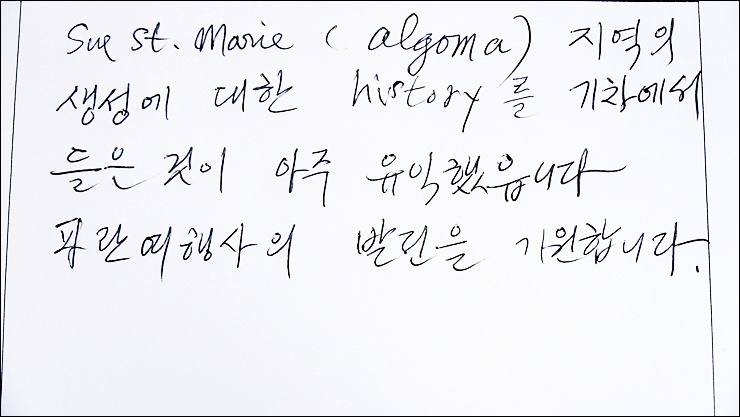 Sue St. Marie (algoma) 지역의
생성에 대한 history를 기차에서
들은 것이 아주 유익했읍니다
파란여행사의 발던을 기원합니다.